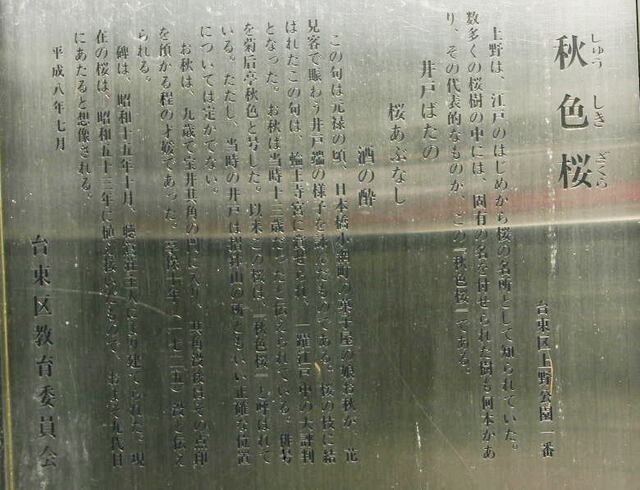 しゅう しき ざくら
秋色桜
台東区上野公園一番
上野は、江戸のはじめから桜の名所として知られていた。
数多くの桜樹の中には、固有の名を付せられた樹も何本かあ
り、その代表的なものが、この「秋色桜」である。
井戸ばたの
桜あぶなし
酒の酔
この句は元禄の頃、日本橋小網町の菓子屋の娘お秋が、花
見客で賑わう井戸端の様子を詠んだものである。桜の枝に結
ばれたこの句は、輪王寺宮に賞せられ、一躍江戸中の大評判
となった。お秋は当時十三歳だったと伝えられている。俳号
を菊后亭秋色と号した。以来この桜は、「秋色桜」と呼ばれて
いる。ただし、当時の井戸は摺鉢山の所ともいい正確な位置
については定かでない。
お秋は、九歳で宝井其角の門に入り、其角没後はその点印
を預かる程の才媛であった。享保十年（一七二五）没と伝え
られる。
碑は、昭和十五年十月、聴鶯荘主人により建てられた。現
在の桜は、昭和五十三年に植え接いだもので、およそ九代目
にあたると想像される。
平成八年七月
台東区教育委員会